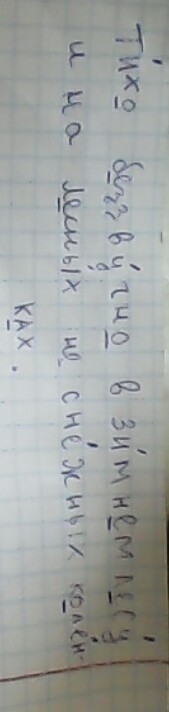 Ти́хо беззву́чно в зи́мнем лесу́
и на лесных не сне́жных коле́н-
ках.